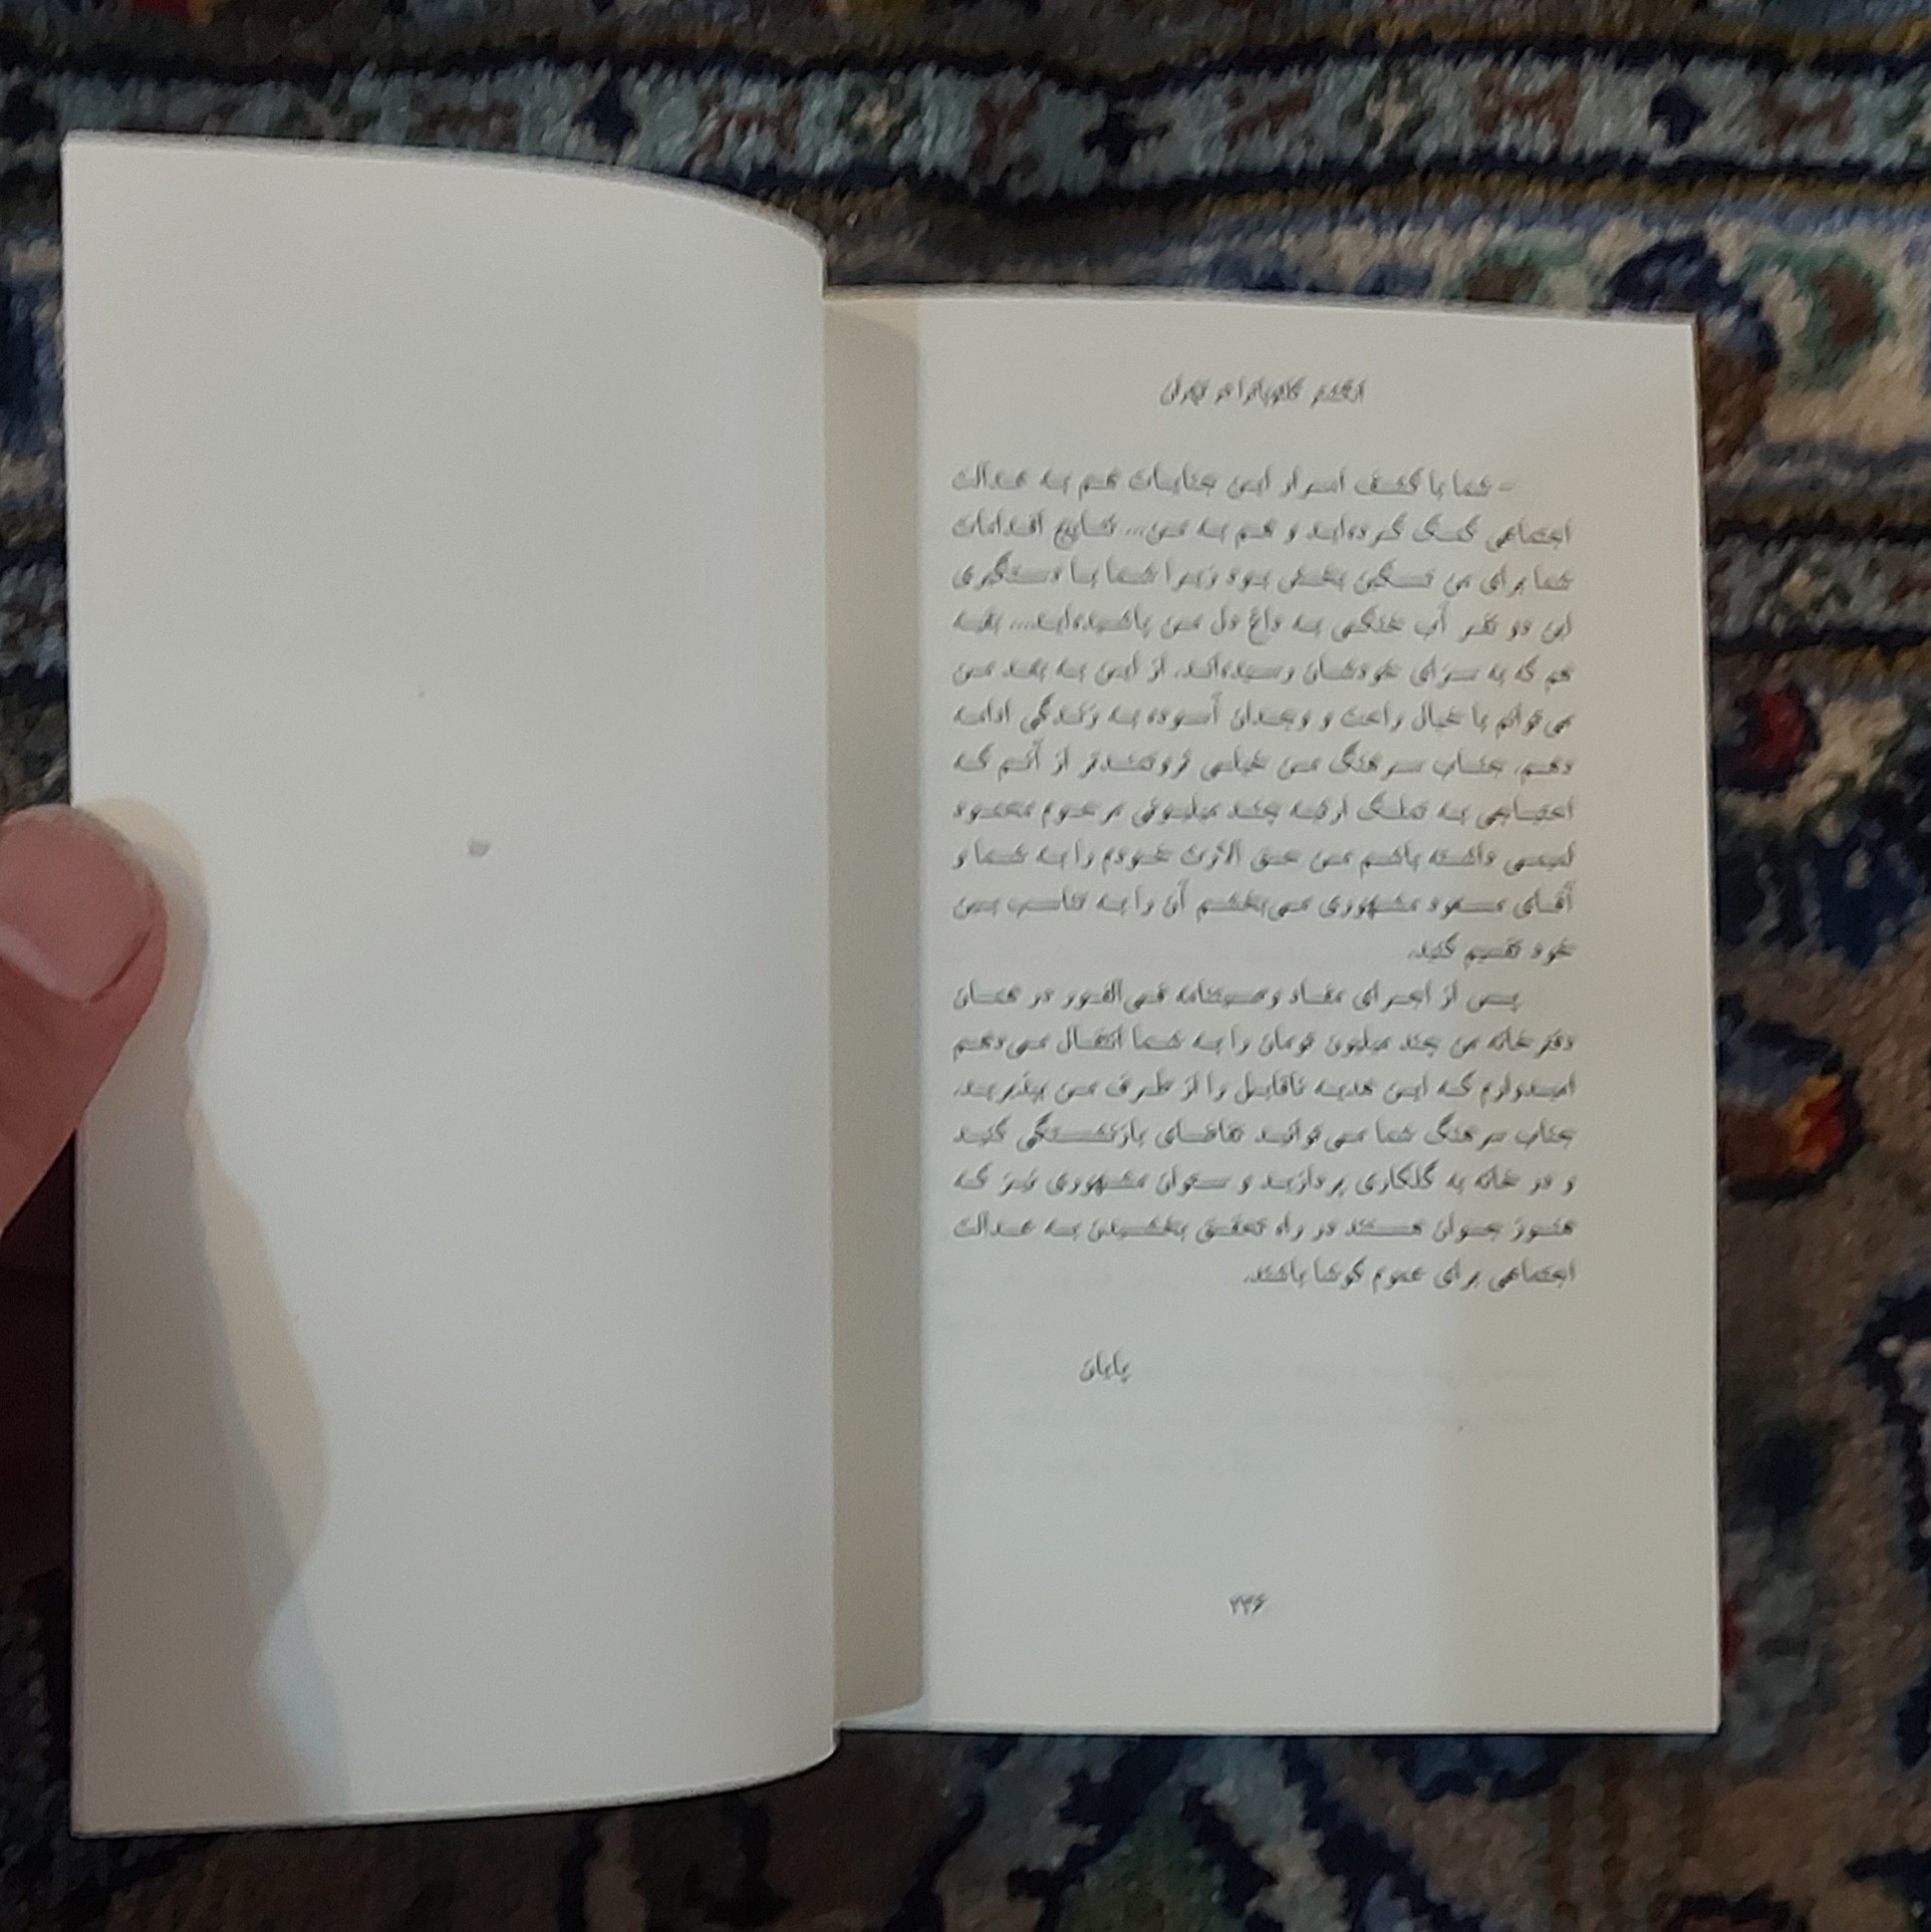 انگشتر کلئوپاترا در تهران
- شما با کشف اسرار این جنایات هم به عدالت
اجتماعی کمک کرده‌اید و هم به من... نتایج اقدامات
شما برای من تسکین بخش بود زیرا شما با دستگیری
این دو نفر آب خنکی به داغ دل من پاشیده‌اید... بقیه
هم که به سزای خودشان رسیده‌اند. از این به بعد من
می‌توانم با خیال راحت و وجدان آسوده به زندگی ادامه
دهم. جناب سرهنگ من خیلی ثروتمندتر از آنم که
احتیاجی به تملک ارثیه چند میلیونی مرحوم محمود
لمیعی داشته باشم من حق الارث خودم را به شما و
آقای مسعود مشهوری می‌بخشم آن را به تناسب بین
خود تقسیم کنید.
پس از اجرای مفاد وصیتنامه فی‌الفور در همان
دفترخانه من چند میلیون تومان را به شما انتقال می‌دهم
امیدوارم که این هدیه ناقابل را از طرف من بپذیرید.
جناب سرهنگ شما می‌توانید تقاضای بازنشستگی کنید
و در خانه به گلکاری پردازید و ستوان مشهوری نیز که
هنوز جوان هستند در راه تحقق بخشیدن به عدالت
اجتماعی برای عموم کوشا باشند.
پایان
۲۳۶